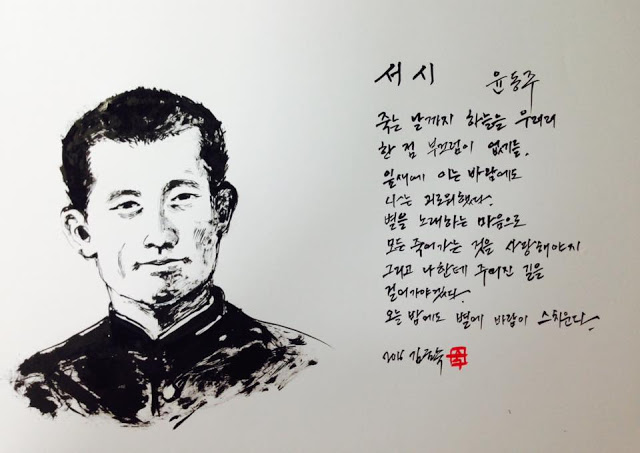 서 시 윤동주
죽는 날까지 하늘을 우러러
한 점 부끄럼이 없기를,
잎새에 이는 바람에도
나는 괴로워했다.
별을 노래하는 마음으로
모든 죽어가는 것을 사랑해야지
그리고 나한테 주어진 길을
걸어가야겠다.
오늘 밤에도 별에 바람이 스치운다.
2016